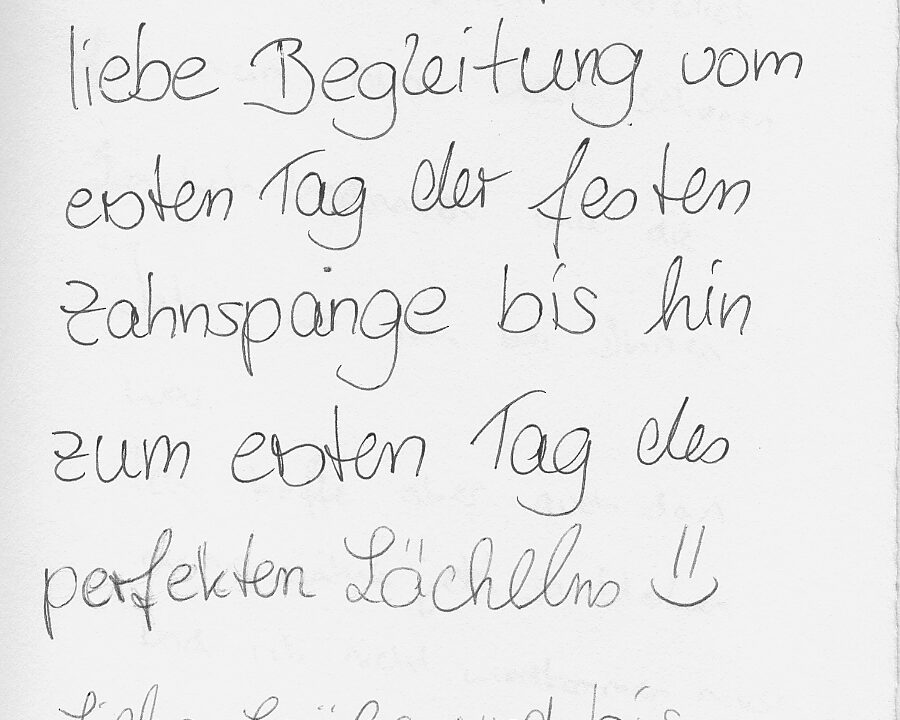 liebe Begleitung vom
ersten Tag der festen
Zahnspange bis hin
zum ersten Tag des
perfekten Lächelns